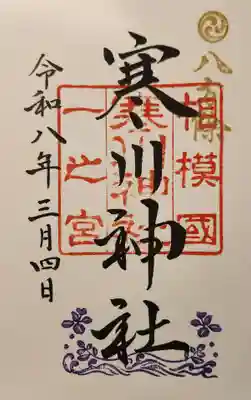 八方除
相模國
一之宮
寒川神社
寒川神社
令和八年三月四日